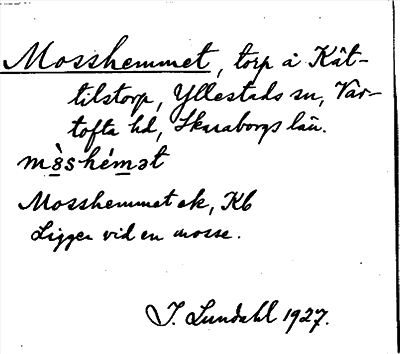 Mosshemmet, torp å Kät-
tilstorp, Yllestads sn, Var-
tofta hd, Skaraborgs län.
mo̤̍shémət
Mosshemmet ek, Kb
Ligger vid en mosse.
I. Lundahl 1927.